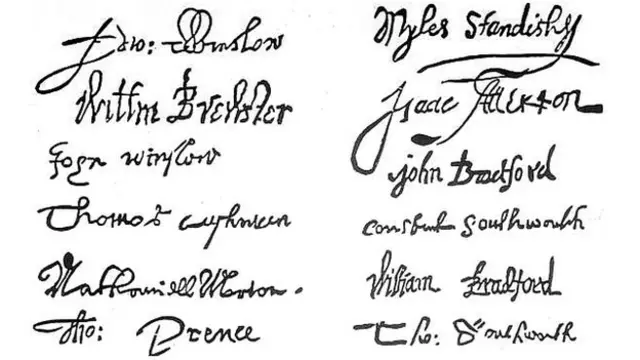 Edw: Winslow
Willm Brewster
John Winslow
Thomas Cushman
Nathaniell Morton.
Tho: Prence
Myles Standish
Isaac Allerton
John Bradford
Constant Southworth
William Bradford
Tho: Southworth